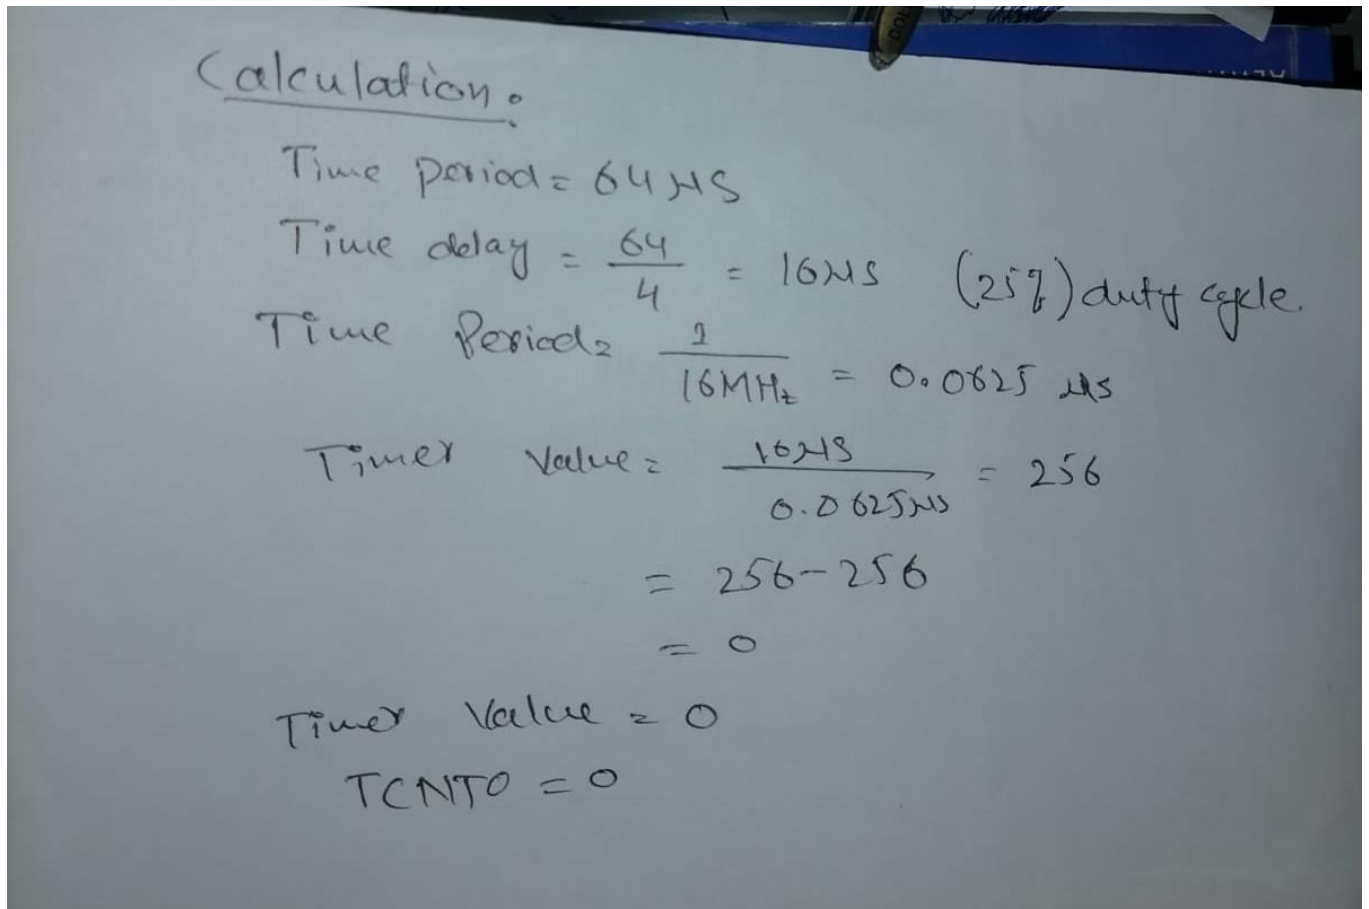 Calculation.
Time period = 64 µs
Time delay = 64/4 = 16 µs (25%) duty cycle.
Time Period = 1/16MHz = 0.0625 µs
Timer Value = 16µs/0.0625µs = 256
= 256-256
= 0
Timer Value = 0
TCNT0 = 0